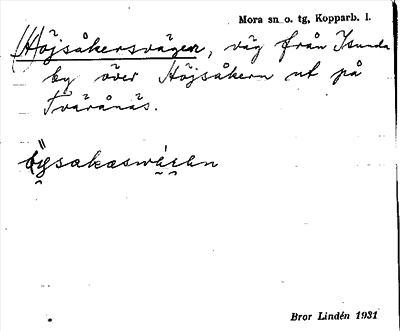 Mora sn o. tg, Kopparb. l.
(Höjsåkersvägen, väg från Isunda
by över Höjsåkern ut på
Tvärånäs.
Bror Lindén 1931